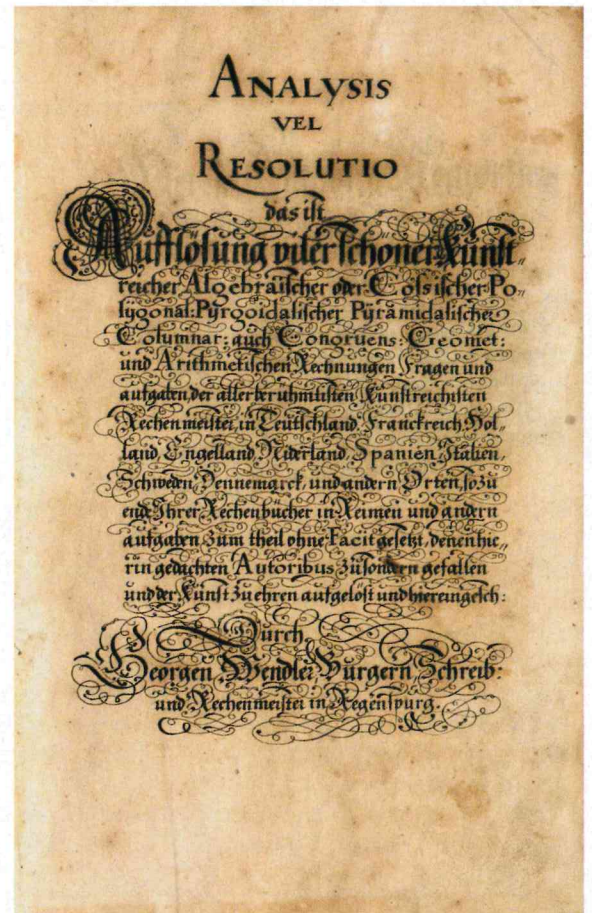 ANALYSIS
VEL
RESOLUTIO
das ist
Aufflösung viler schoner Kunst„
reicher Algebraischer oder Cossischer Po„
lygonal: Pyrgoidalischer Pyramidalischer
Columnar: auch Congruens: Geomet:
und Arithmetischen Rechnungen Fragen und
aufgaben, der allerberuhmtisten Kunstreichisten
Rechenmeister, in Teutschland, Franckreich, Hol„
land, Engelland, Niderland, Spanien, Italien,
Schweden, Dennemarck, und andern Orten, so zu
ende Ihrer Rechenbücher in Reimen und andern
aufgaben, zum theil ohne Facit gesetzt, denen hie„
rin gedachten Autoribus zu sondern gefallen
und der Kunst zu ehren aufgelöst und hierein gesch:
Durch
Georgen Wendler Burgern, Schreib:
und Rechenmeister in Regenspurg.